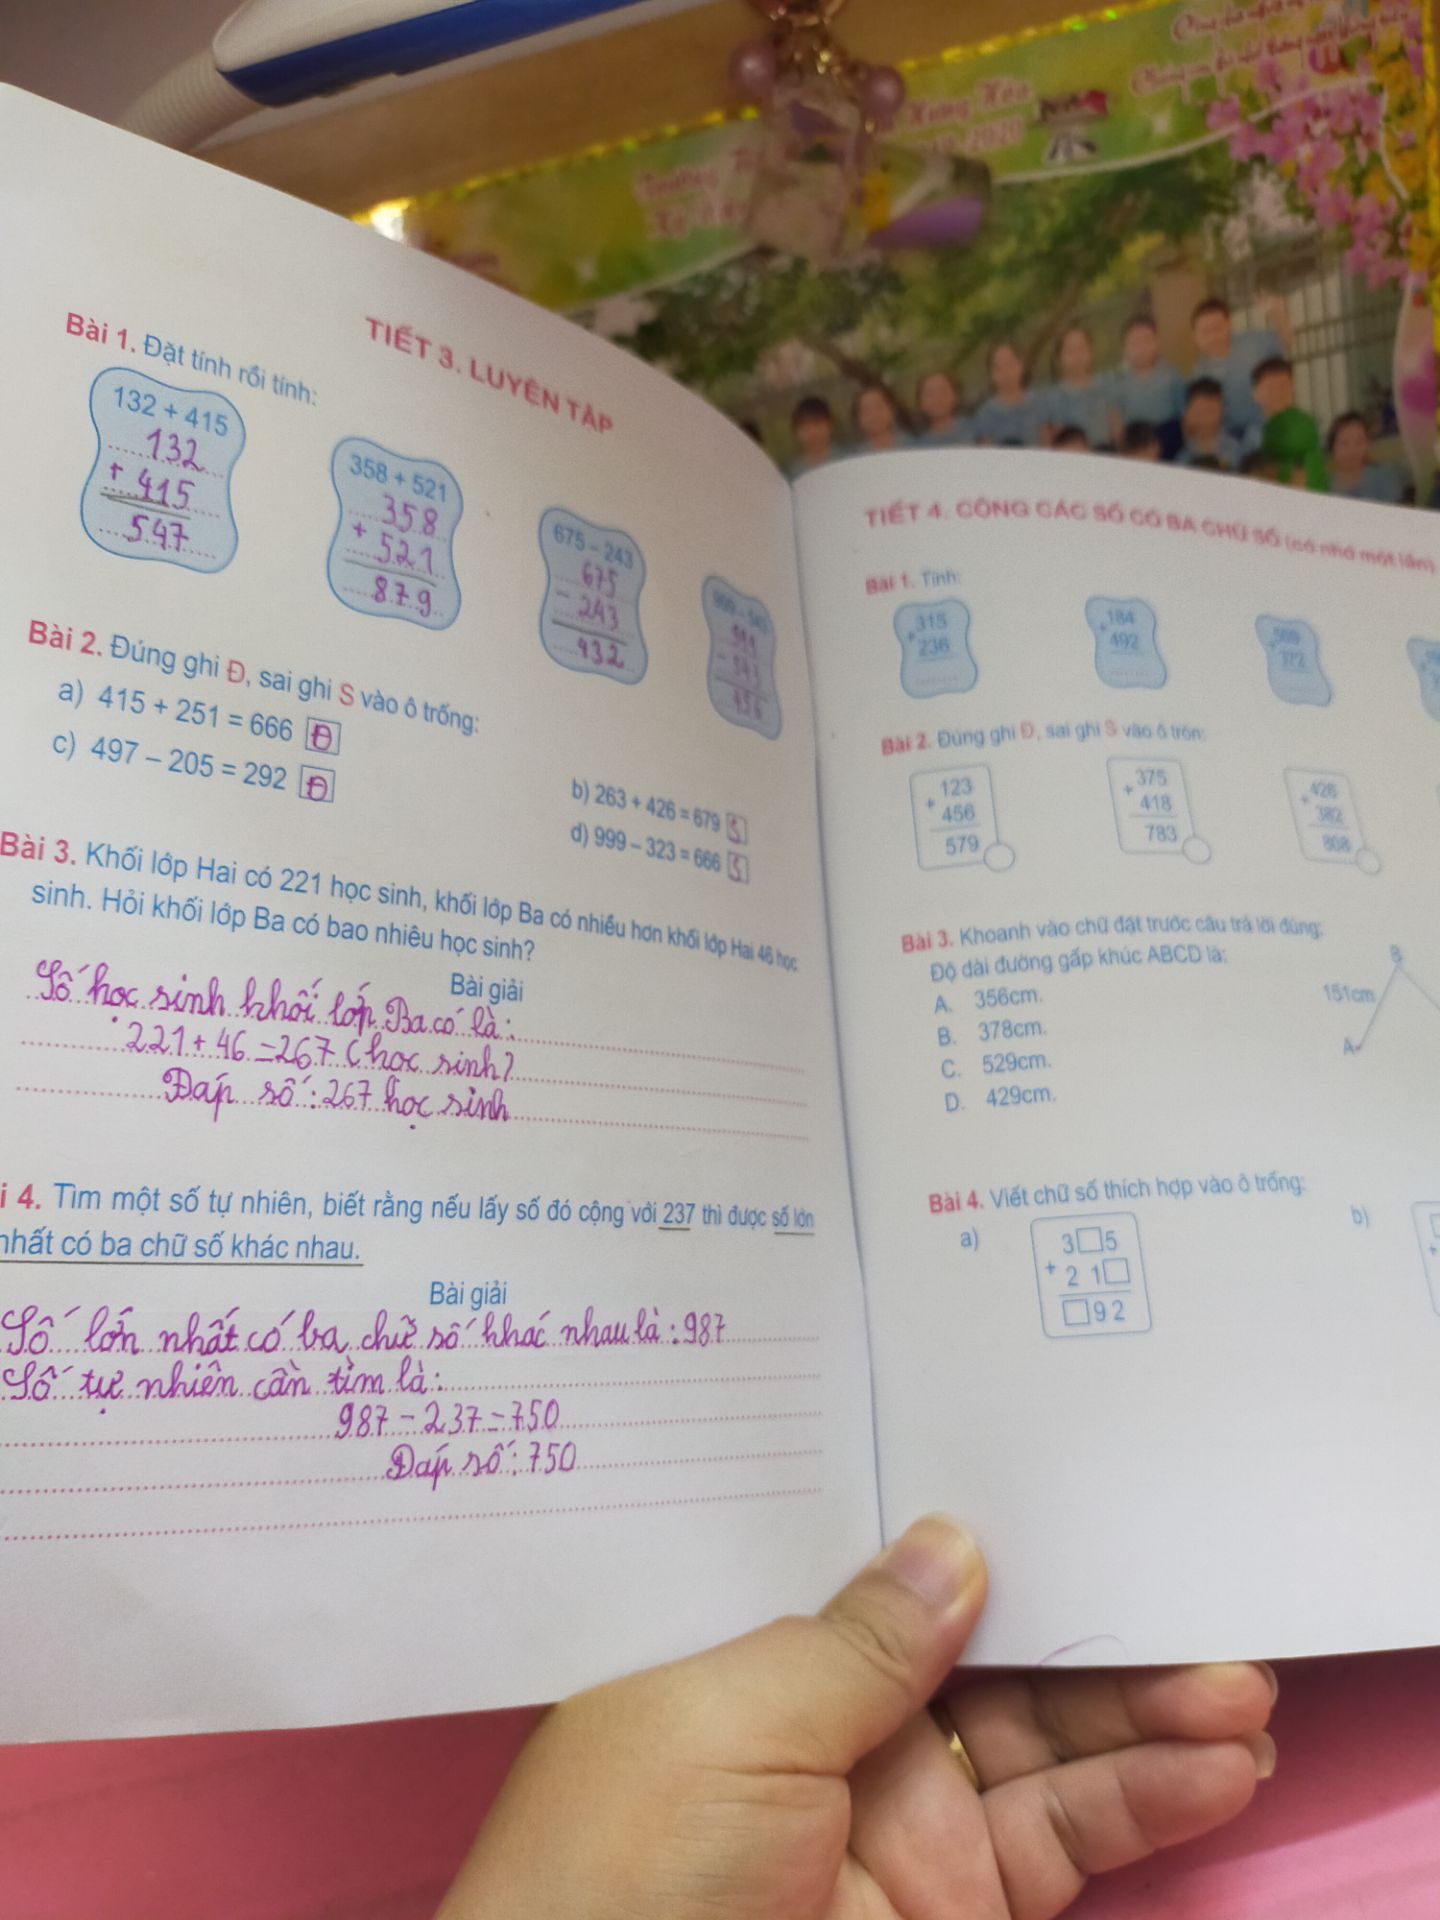 TIẾT 3. LUYỆN TẬP
Bài 1. Đặt tính rồi tính:
132 + 415
132
+ 415
547
358 + 521
358
+ 521
879
675 – 243
675
- 243
432
Bài 2. Đúng ghi Đ, sai ghi S vào ô trống:
a) 415 + 251 = 666 Đ
b) 263 + 426 = 679 S
c) 497 – 205 = 292 Đ
d) 999 – 323 = 666 S
Bài 3. Khối lớp Hai có 221 học sinh, khối lớp Ba có nhiều hơn khối lớp Hai 46 học
sinh. Hỏi khối lớp Ba có bao nhiêu học sinh?
Bài giải
Số học sinh khối lớp Ba có là:
221 + 46 = 267 (học sinh)
Đáp số: 267 học sinh
i 4. Tìm một số tự nhiên, biết rằng nếu lấy số đó cộng với 237 thì được số lớn
nhất có ba chữ số khác nhau.
Bài giải
Số lớn nhất có ba chữ số khác nhau là: 987
Số tự nhiên cần tìm là:
987 - 237 = 750
Đáp số: 750
TIẾT 4. CỘNG CÁC SỐ CÓ BA CHỮ SỐ (có nhớ một lần)
Bài 1. Tính:
315
+ 236
184
+ 492
Bài 2. Đúng ghi Đ, sai ghi S vào ô tròn:
123
+ 456
579
375
+ 418
783
426
+ 382
808
Bài 3. Khoanh vào chữ đặt trước câu trả lời đúng:
Độ dài đường gấp khúc ABCD là:
A. 356cm.
B. 378cm.
C. 529cm.
D. 429cm.
B
151cm
A
Bài 4. Viết chữ số thích hợp vào ô trống:
a)
3□5
+ 21□
□92
b)